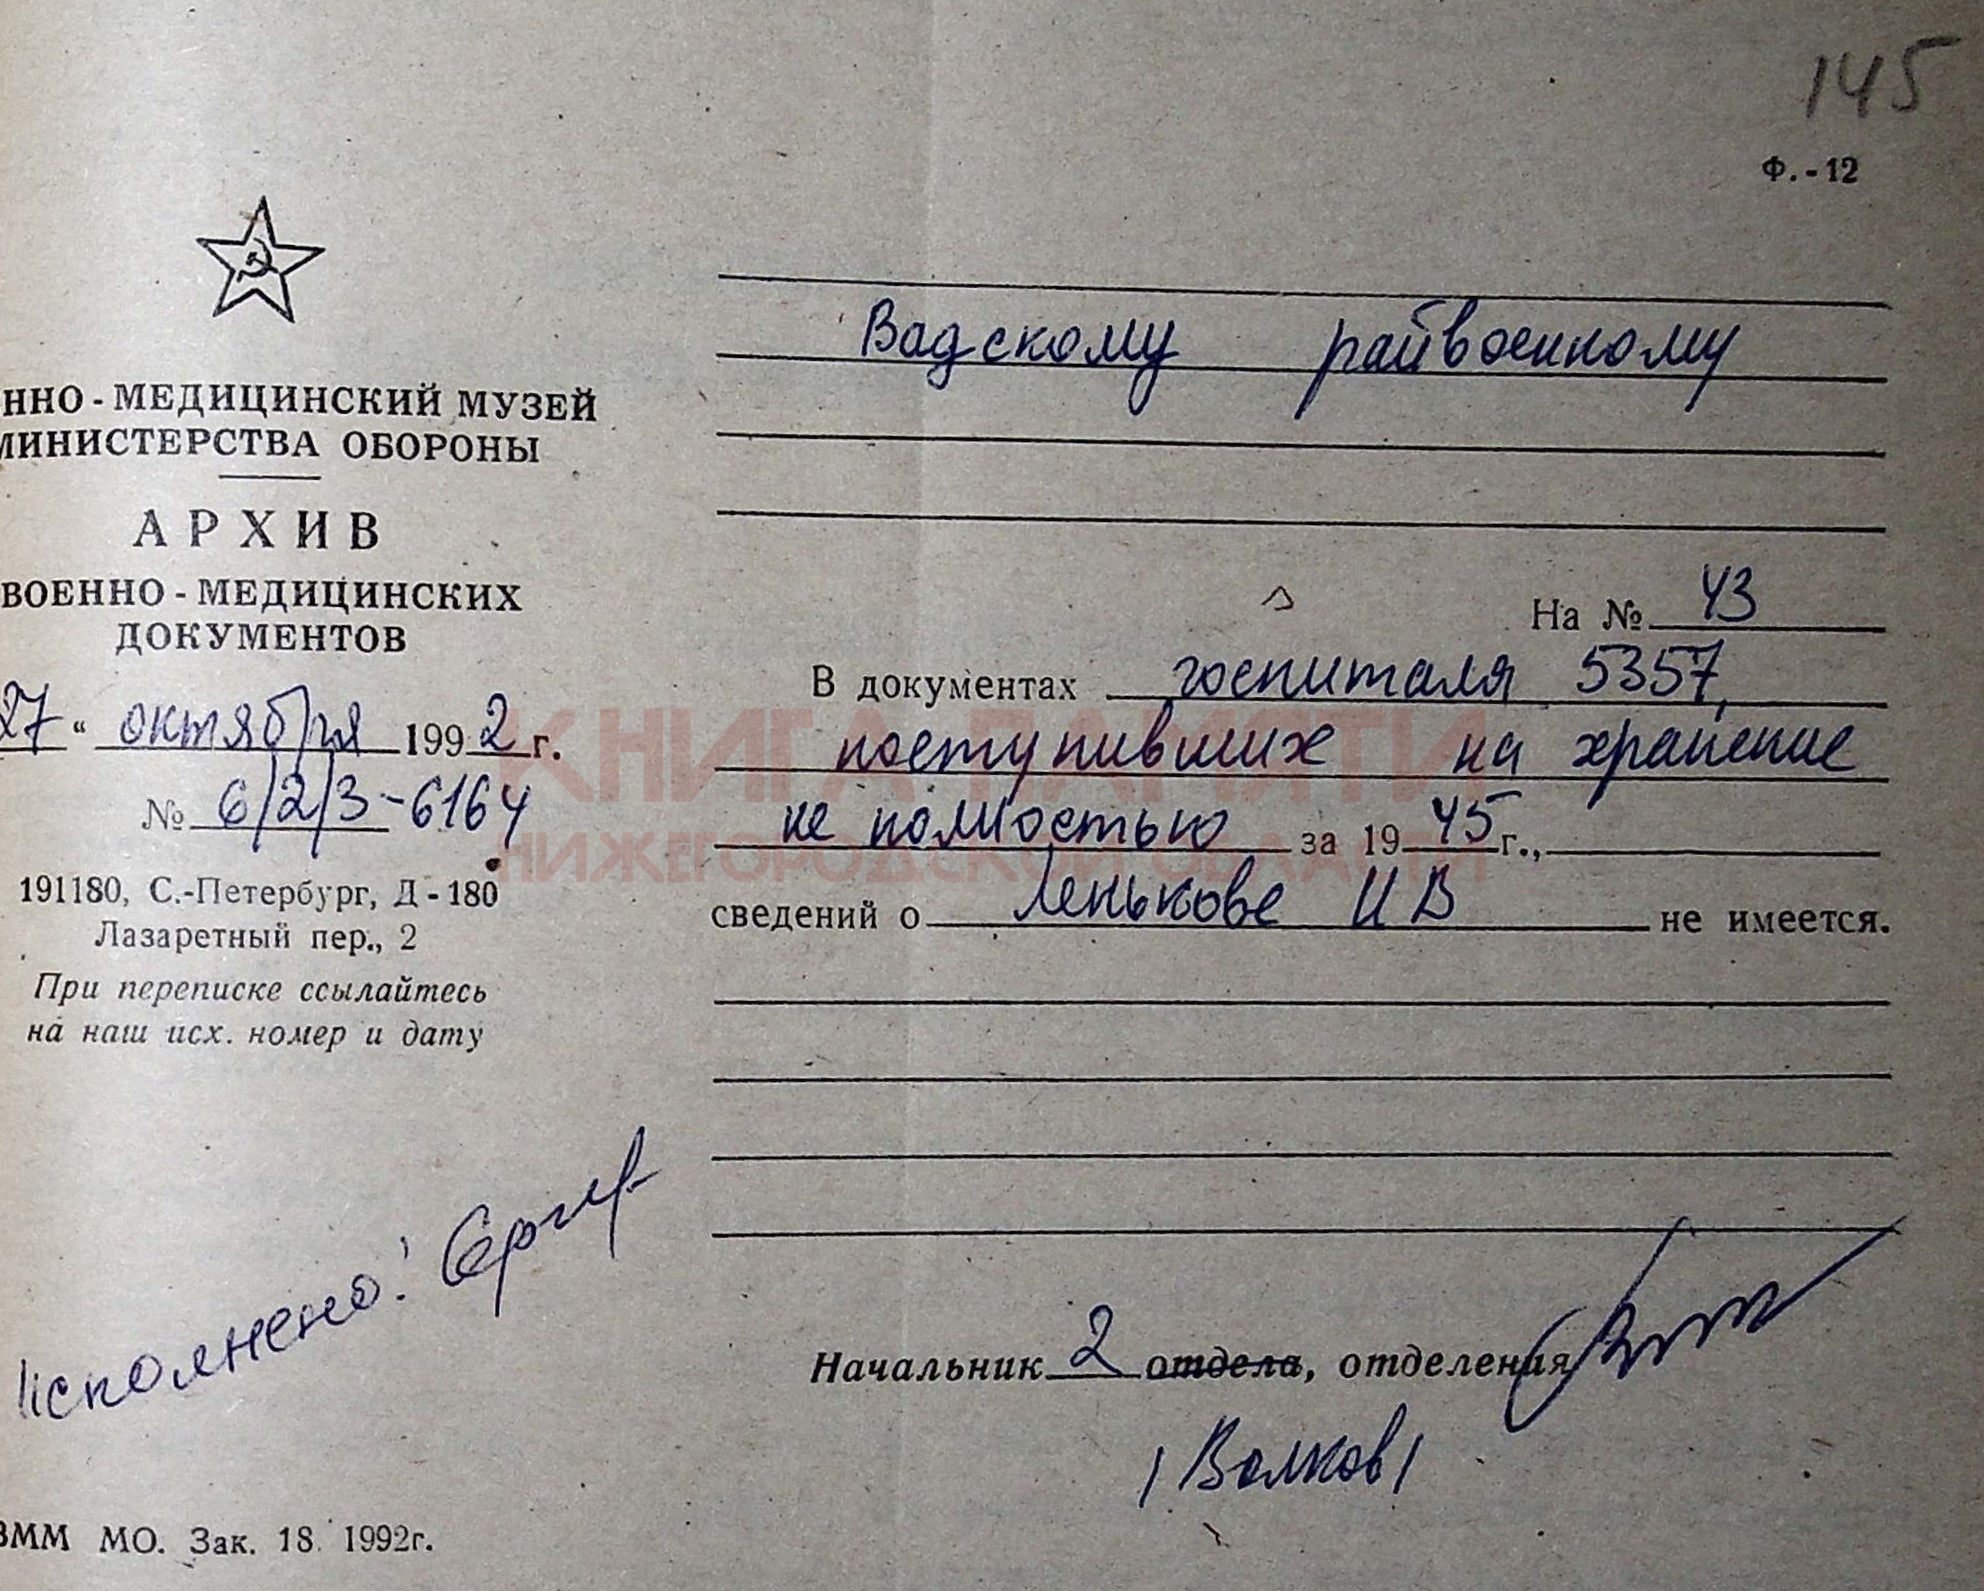 145
Ф.-12
ННО-МЕДИЦИНСКИЙ МУЗЕЙ
МИНИСТЕРСТВА ОБОРОНЫ
АРХИВ
ВОЕННО-МЕДИЦИНСКИХ
ДОКУМЕНТОВ
27 " октября 1992 г.
№ 6/2/3-6164
191180, С.-Петербург, Д-180
Лазаретный пер., 2
При переписке ссылайтесь
на наш исх. номер и дату
Вадскому райвоенкому
На № 43
В документах госпиталя 5357,
поступивших на хранение
не полностью за 1945 г.,
сведений о Ленькове И В не имеется.
КНИГА ПАМЯТИ
НИЖЕГОРОДСКОЙ ОБЛАСТИ
Исполнено!
Начальник 2 отдела, отделения
/Волков/
ВММ МО. Зак. 18. 1992г.